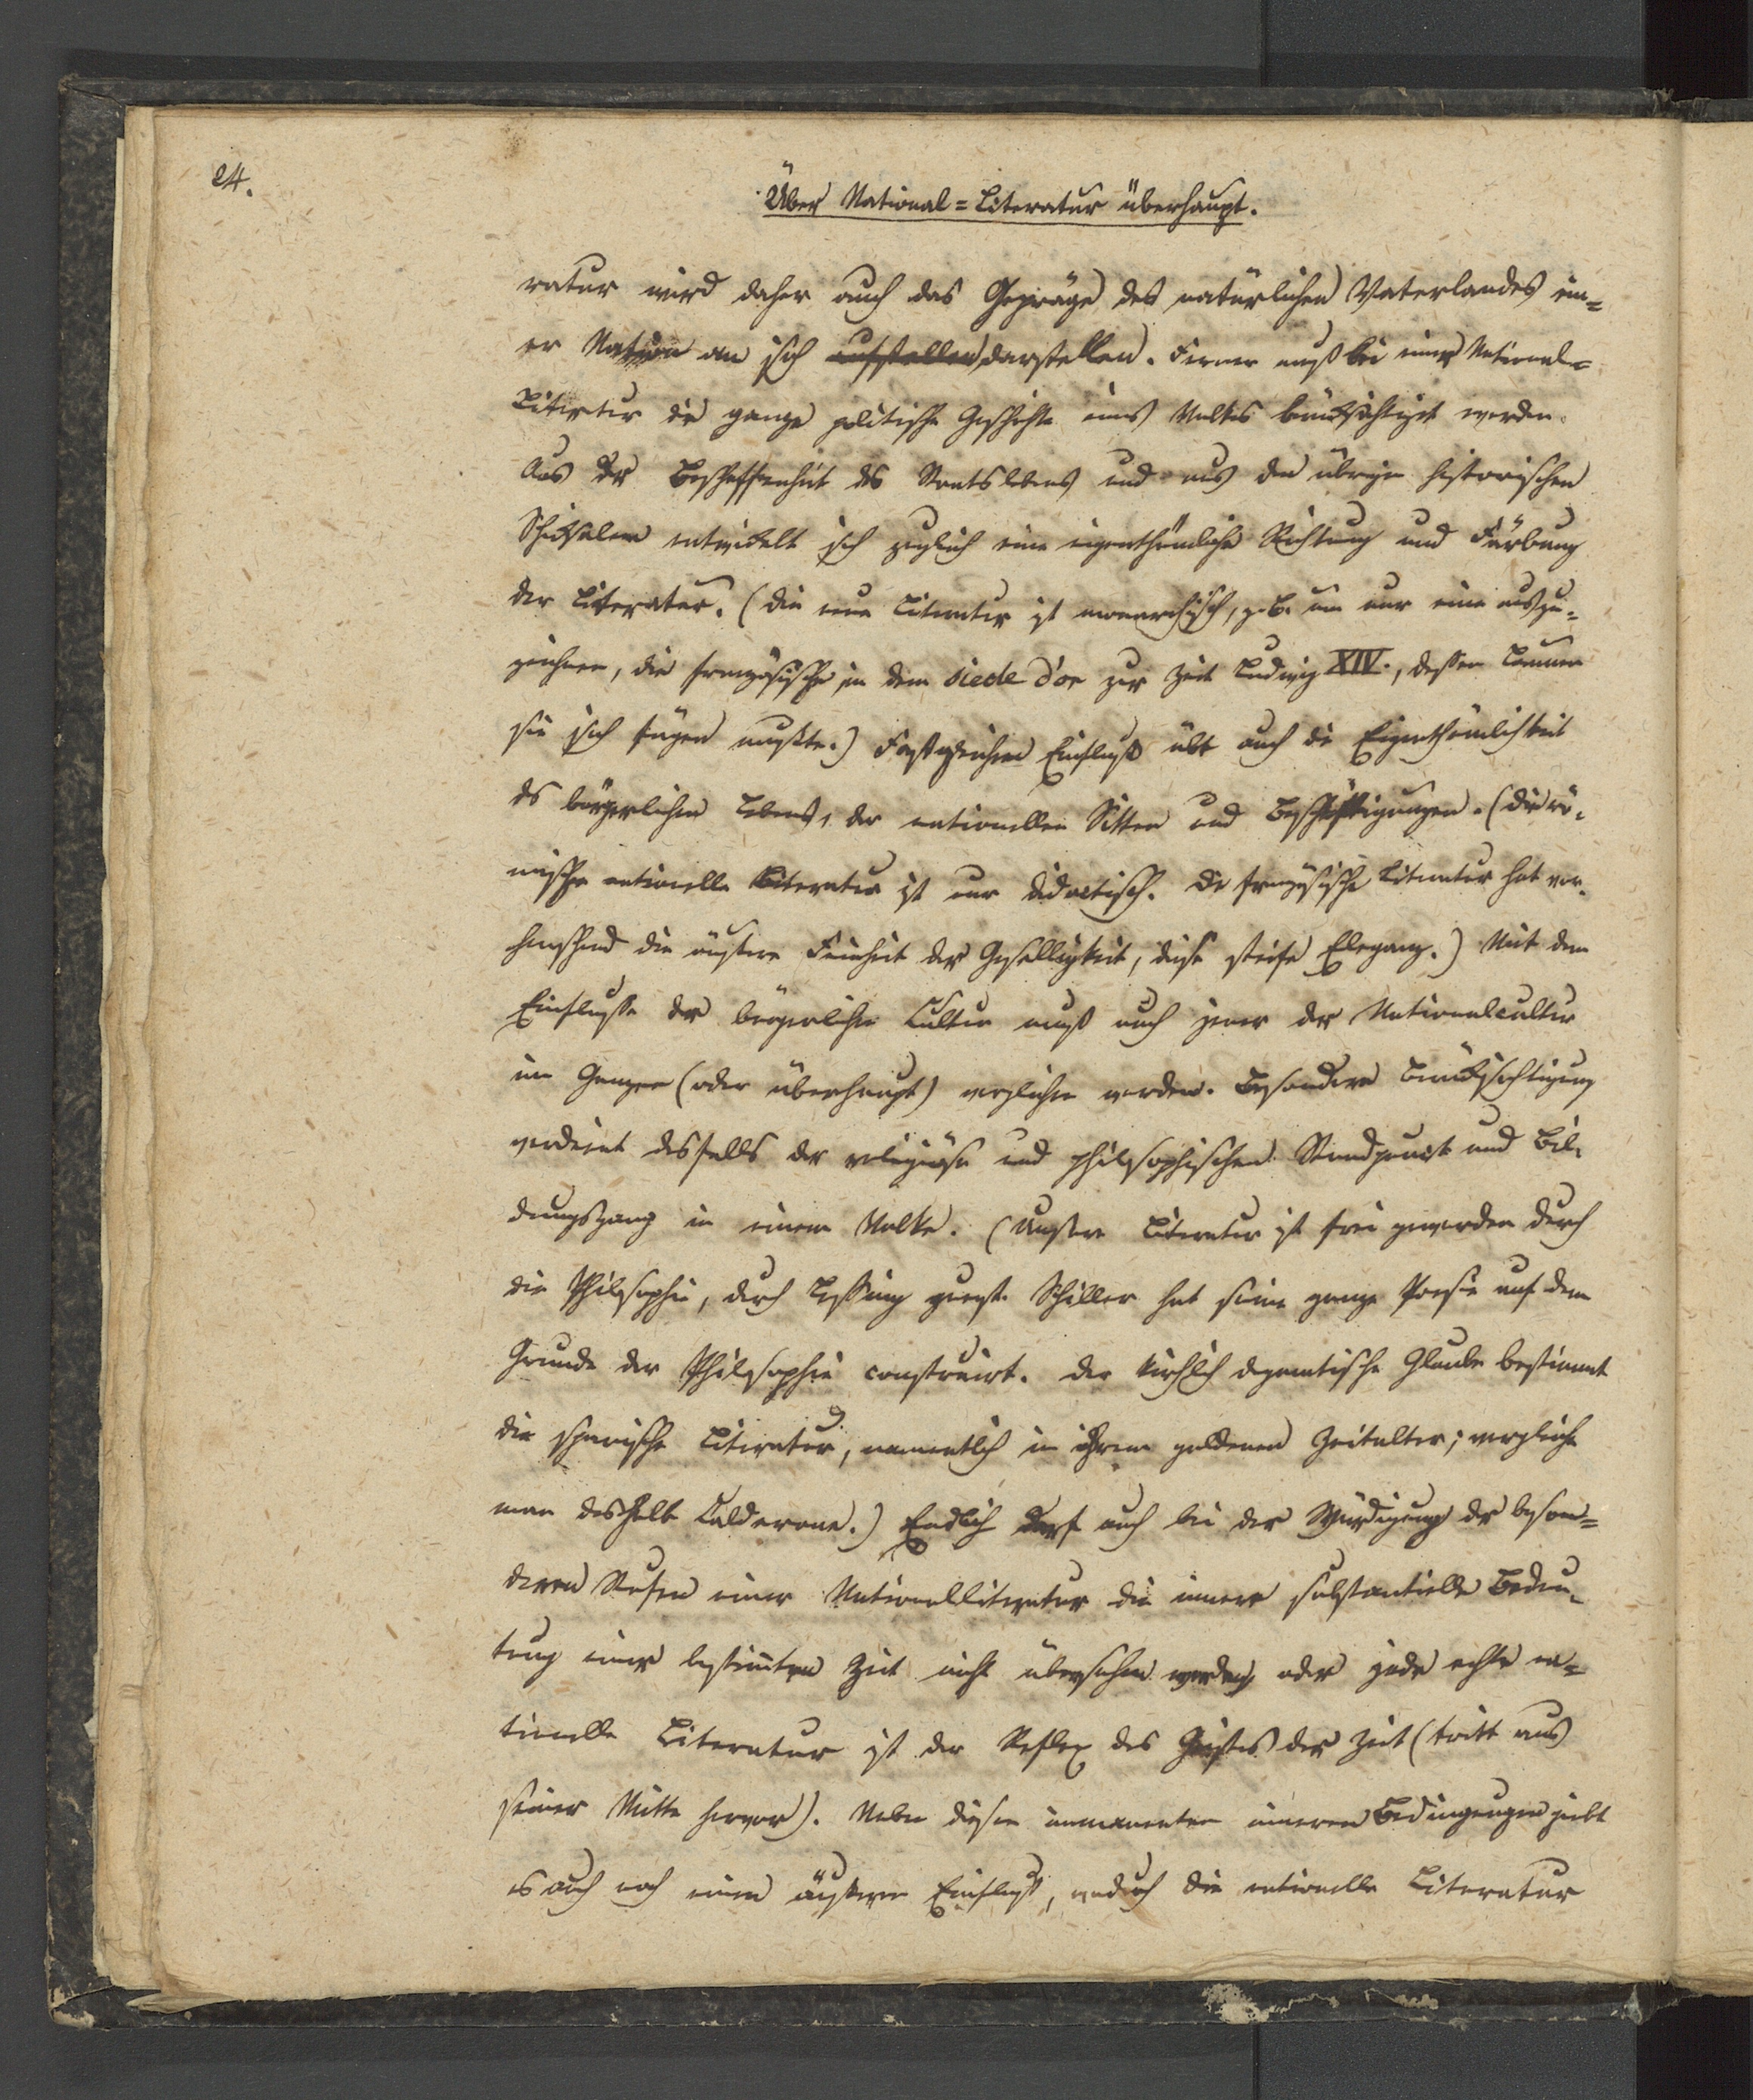 24.
Über National=Literatur überhaupt.
ratur wird daher auch das Gepräge des natürlichen Vaterlandes ein=
er Nation an sich aufstellen darstellen. Ferner muß bei einer National=
Literatur die ganze politische Geschichte eines Volkes berücksichtiget werden.
Aus der Beschaffenheit des Staatslebens und aus den übrigen historischen
Schicksalen entwickelt sich zugleich eine eigenthümliche Richtung und Färbung
der Literatur. (Die neue Literatur ist monarchisch, z. B. um nur eine auszu=
zeichnen, die französische in dem siecle d'or zur Zeit Ludwig XIV., dessen Launen
sie sich fügen mußte.) Fast gleichen Einfluß übt auch die Eigenthümlichkeit
des bürgerlichen Lebens, der nationellen Sitten und Beschäftigungen. (Die rö=
mische nationelle Literatur ist nur didactisch. Die französische Literatur hat vor=
herrschend die äußere Feinheit der Geselligkeit, diese steife Eleganz.) Mit dem
Einflusse der bürgerlichen Cultur muß auch jener der Nationalcultur
im Ganzen (oder überhaupt) verglichen werden. Besondere Berücksichtigung
verdient desfalls der religiöse und philosophischen Standpunct und Bil=
dungsgang in einem Volke. (Unsere Literatur ist frei geworden durch
die Philosophie, durch Lessing zuerst. Schiller hat seine ganze Poesie auf dem
Grunde der Philosophie construirt. Der kirchlich dogmatische Glaube bestimmt
die spanische Literatur, namentlich in ihrem goldenen Zeitalter; vergleiche
man deshalb Calderone.) Endlich darf auch bei der Würdigung der beson=
deren Stufen einer Nationalliteratur die innere substantielle Bedeu=
tung einer bestimmten Zeit nicht übersehen werden, oder jede echte na=
tionelle Literatur ist der Reflex des Geistes der Zeit (tritt aus
seiner Mitte hervor). Neben diesen immanenten inneren Bedingungen giebt
es auch noch einen äußeren Einfluß, wodurch die nationelle Literatur